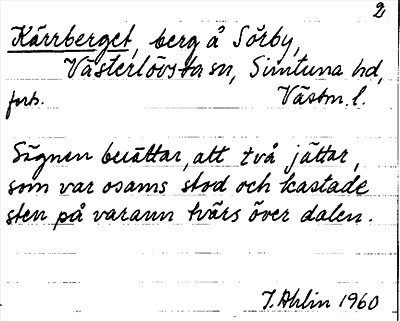 2
Kärrberget, berg å Sörby,
Västerlövsta sn, Simtuna hd,
forts. Västm. l.
Sägnen berättar, att två jättar,
som var osams stod och kastade
sten på varann tvärs över dalen.
J. Ahlin 1960